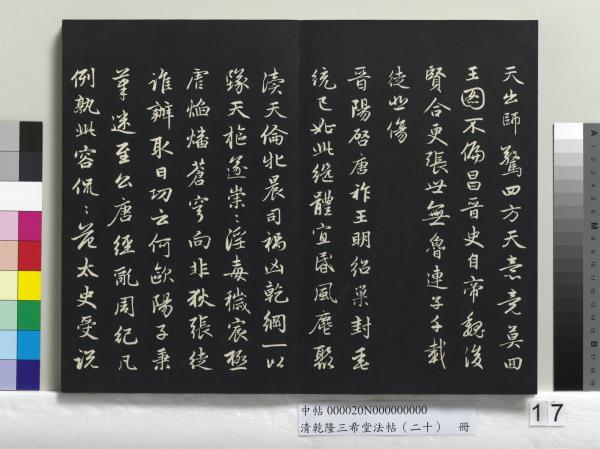 天出師驚四方天意竟莫回
王圖不偏昌晉史自帝魏後
賢合更張世無魯連子千載
徒悲傷
晉陽啓唐祚王明紹巢封垂
統已如此繼體宜昏風麀聚
瀆天倫牝晨司禍凶乾綱一以
墜天樞遂崇〻淫毒穢宸極
虐焰燔蒼穹向非狄張徒
誰辦取日功云何歐陽子秉
筆迷至公唐經亂周紀凡
例孰此容侃〻范太史受説
中帖 000020N000000000
清乾隆三希堂法帖(二十) 冊
17